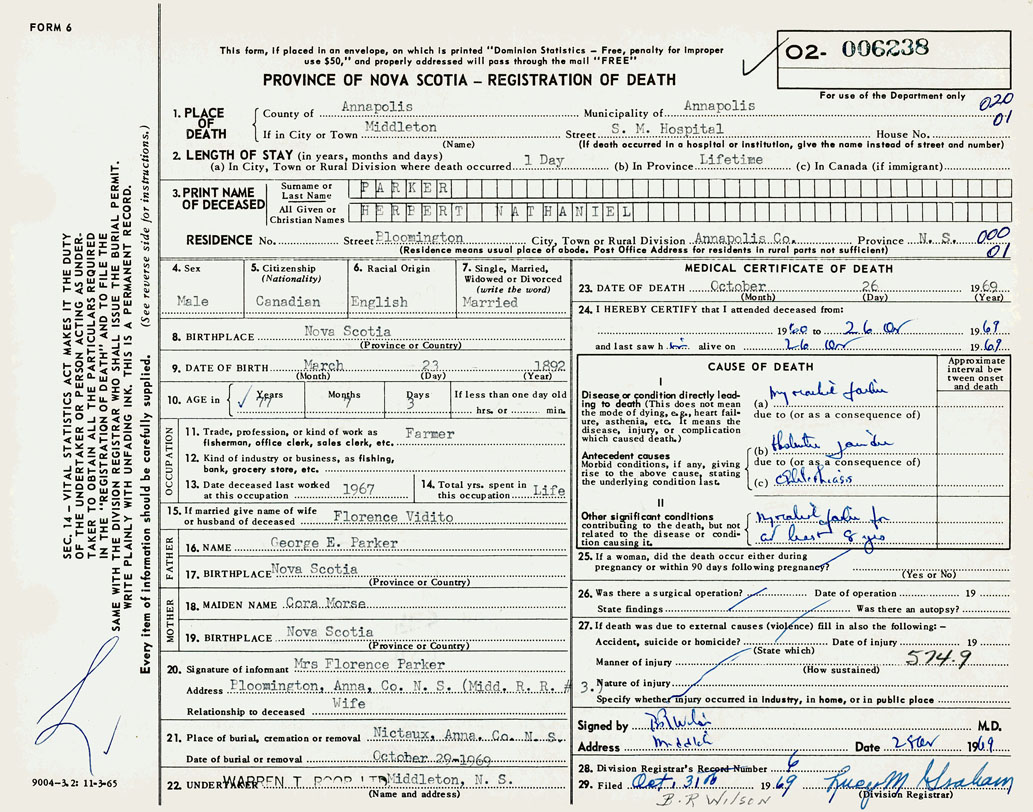 FORM 6
This form, if placed in an envelope, on which is printed "Dominion Statistics – Free, penalty for improper
use $50," and properly addressed will pass through the mail "FREE"
PROVINCE OF NOVA SCOTIA – REGISTRATION OF DEATH
O2- 006238
For use of the Department only
020
01
1. PLACE OF DEATH
County of Annapolis Municipality of Annapolis
If in City or Town Middleton Street S. M. Hospital House No.
(Name) (If death occurred in a hospital or institution, give the name instead of street and number)
2. LENGTH OF STAY (in years, months and days)
(a) In City, Town or Rural Division where death occurred 1 Day (b) In Province Lifetime (c) In Canada (if immigrant)
3. PRINT NAME OF DECEASED
Surname or Last Name PARKER
All Given or Christian Names HERPERT NATHANIEL
RESIDENCE No. Street Bloomington City, Town or Rural Division Annapolis Co. Province N. S. 000
(Residence means usual place of abode. Post Office Address for residents in rural parts not sufficient) 01
SEC. 14 – VITAL STATISTICS ACT MAKES IT THE DUTY
OF THE UNDERTAKER OR PERSON ACTING AS UNDER-
TAKER TO OBTAIN ALL THE PARTICULARS REQUIRED
IN THE "REGISTRATION OF DEATH" AND TO FILE THE
SAME WITH THE DIVISION REGISTRAR WHO SHALL ISSUE THE BURIAL PERMIT.
WRITE PLAINLY WITH UNFADING INK. THIS IS A PERMANENT RECORD.
Every item of information should be carefully supplied. (See reverse side for instructions.)
4. Sex
Male
5. Citizenship
(Nationality)
Canadian
6. Racial Origin
English
7. Single, Married,
Widowed or Divorced
(write the word)
Married
8. BIRTHPLACE Nova Scotia
(Province or Country)
9. DATE OF BIRTH March 23 1892
(Month) (Day) (Year)
10. AGE in Years Months Days If less than one day old
77 7 3 hrs. or min.
OCCUPATION
11. Trade, profession, or kind of work as Farmer
fisherman, office clerk, sales clerk, etc.
12. Kind of industry or business, as fishing,
bank, grocery store, etc.
13. Date deceased last worked
at this occupation 1967
14. Total yrs. spent in
this occupation Life
15. If married give name of wife
or husband of deceased Florence Vidito
FATHER
16. NAME George E. Parker
17. BIRTHPLACE Nova Scotia
(Province or Country)
MOTHER
18. MAIDEN NAME Cora Morse
19. BIRTHPLACE Nova Scotia
(Province or Country)
20. Signature of informant Mrs Florence Parker
Address Bloomington, Anna, Co. N. S. (Midd. R. R. # 3.)
Relationship to deceased Wife
21. Place of burial, cremation or removal Nictaux, Anna. Co. N. S.
Date of burial or removal October 29-1969
22. UNDERTAKER WARREN T. ROOP LTD Middleton, N. S.
(Name and address)
9004-3.2: 11-3-65
MEDICAL CERTIFICATE OF DEATH
23. DATE OF DEATH October 26 1969
(Month) (Day) (Year)
24. I HEREBY CERTIFY that I attended deceased from:
1960 to 26 Oct 1969
and last saw him alive on 26 Oct 1969
CAUSE OF DEATH
Approximate
interval be-
tween onset
and death
I
Disease or condition directly lead-
ing to death (This does not mean
the mode of dying, e.g., heart fail-
ure, asthenia, etc. It means the
disease, injury, or complication
which caused death.)
(a) Myocardial failure
due to (or as a consequence of)
Antecedent causes
Morbid conditions, if any, giving
rise to the above cause, stating
the underlying condition last.
(b) Obstructive jaundice
due to (or as a consequence of)
(c)
II
Other significant conditions
contributing to the death, but not
related to the disease or condi-
tion causing it.
Myocardial failure for
at least 8 yrs
25. If a woman, did the death occur either during
pregnancy or within 90 days following pregnancy?
(Yes or No)
26. Was there a surgical operation? Date of operation 19
State findings Was there an autopsy?
27. If death was due to external causes (violence) fill in also the following: –
Accident, suicide or homicide? Date of injury 19
(State which) 574.9
Manner of injury
(How sustained)
Nature of injury
Specify whether injury occurred in Industry, in home, or in public place
Signed by B R Wilson M.D.
Address Middleton Date 28 Oct 1969
28. Division Registrar's Record Number 6
29. Filed Oct, 31st 1969 Lucy M Graham
B. R WILSON (Division Registrar)